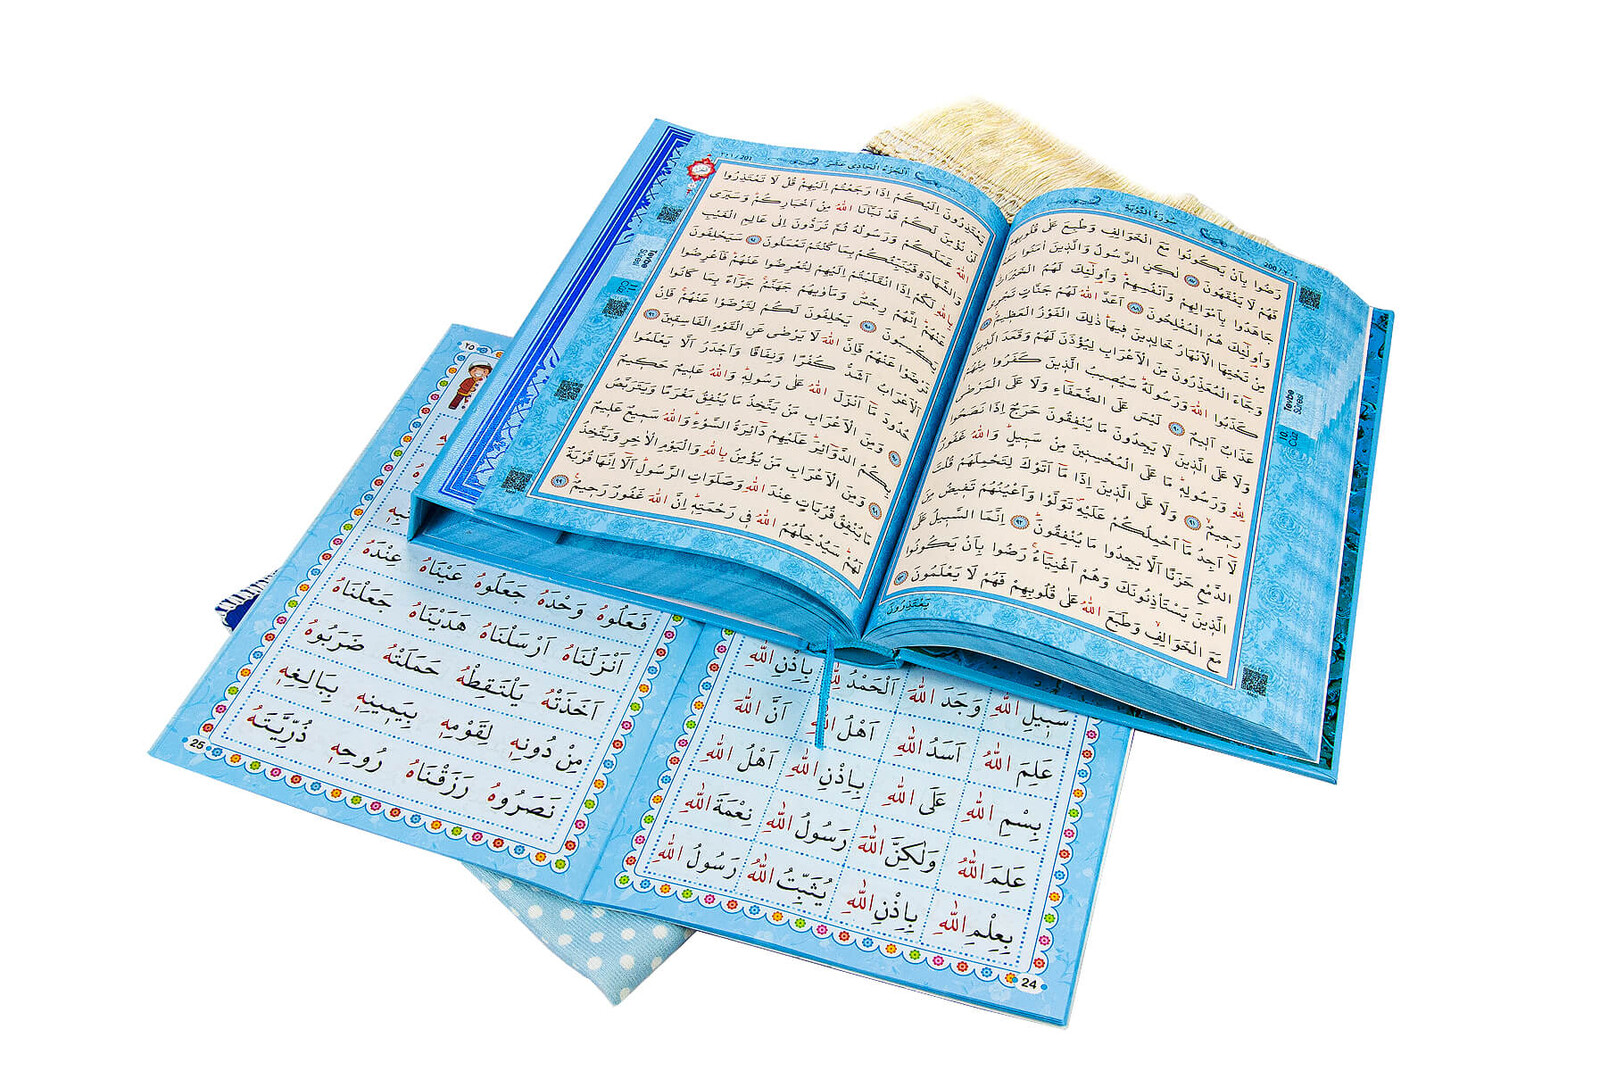 سُورَةُ التَّوْبَةِ
200
رَضُوا بِاَنْ يَكُونُوا مَعَ الْخَوَالِفِ وَطُبِعَ عَلٰى قُلُوبِهِمْ
فَهُمْ لَا يَفْقَهُونَ ﴿٨٧﴾ لٰكِنِ الرَّسُولُ وَالَّذ۪ينَ اٰمَنُوا مَعَهُ
جَاهَدُوا بِاَمْوَالِهِمْ وَاَنْفُسِهِمْۜ وَاُو۬لٰٓئِكَ لَهُمُ الْخَيْرَاتُ
وَاُو۬لٰٓئِكَ هُمُ الْمُفْلِحُونَ ﴿٨٨﴾ اَعَدَّ اللّٰهُ لَهُمْ جَنَّاتٍ تَجْر۪ي
مِنْ تَحْتِهَا الْاَنْهَارُ خَالِد۪ينَ ف۪يهَاۜ ذٰلِكَ الْفَوْزُ الْعَظ۪يمُ ﴿٨٩﴾
وَجَٓاءَ الْمُعَذِّرُونَ مِنَ الْاَعْرَابِ لِيُؤْذَنَ لَهُمْ وَقَعَدَ الَّذ۪ينَ
كَذَبُوا اللّٰهَ وَرَسُولَهُۜ سَيُص۪يبُ الَّذ۪ينَ كَفَرُوا مِنْهُمْ
عَذَابٌ اَل۪يمٌ ﴿٩٠﴾ لَيْسَ عَلَى الضُّعَفَٓاءِ وَلَا عَلَى الْمَرْضٰى
وَلَا عَلَى الَّذ۪ينَ لَا يَجِدُونَ مَا يُنْفِقُونَ حَرَجٌ اِذَا نَصَحُوا
لِلّٰهِ وَرَسُولِه۪ۜ مَا عَلَى الْمُحْسِن۪ينَ مِنْ سَب۪يلٍۜ وَاللّٰهُ غَفُورٌ
رَح۪يمٌۙ ﴿٩١﴾ وَلَا عَلَى الَّذ۪ينَ اِذَا مَٓا اَتَوْكَ لِتَحْمِلَهُمْ قُلْتَ
لَٓا اَجِدُ مَٓا اَحْمِلُكُمْ عَلَيْهِۖ تَوَلَّوْا وَاَعْيُنُهُمْ تَف۪يضُ مِنَ
الدَّمْعِ حَزَنًا اَلَّا يَجِدُوا مَا يُنْفِقُونَۜ ﴿٩٢﴾ اِنَّمَا السَّب۪يلُ عَلَى
الَّذ۪ينَ يَسْتَأْذِنُونَكَ وَهُمْ اَغْنِيَٓاءُۚ رَضُوا بِاَنْ يَكُونُوا
مَعَ الْخَوَالِفِۙ وَطَبَعَ اللّٰهُ عَلٰى قُلُوبِهِمْ فَهُمْ لَا يَعْلَمُونَ ﴿٩٣﴾
يَعْتَذِرُونَ
Tevbe
Sûresi
10. Cüz
اَلْجُزْءُ الْحَادِي عَشَرَ
٢٠١ / 201
يَعْتَذِرُونَ اِلَيْكُمْ اِذَا رَجَعْتُمْ اِلَيْهِمْۜ قُلْ لَا تَعْتَذِرُوا
لَنْ نُؤْمِنَ لَكُمْ قَدْ نَبَّاَنَا اللّٰهُ مِنْ اَخْبَارِكُمْۜ وَسَيَرَى
اللّٰهُ عَمَلَكُمْ وَرَسُولُهُ ثُمَّ تُرَدُّونَ اِلٰى عَالِمِ الْغَيْبِ
وَالشَّهَادَةِ فَيُنَبِّئُكُمْ بِمَا كُنْتُمْ تَعْمَلُونَ ﴿٩٤﴾ سَيَحْلِفُونَ
بِاللّٰهِ لَكُمْ اِذَا انْقَلَبْتُمْ اِلَيْهِمْ لِتُعْرِضُوا عَنْهُمْۜ فَاَعْرِضُوا
عَنْهُمْۜ اِنَّهُمْ رِجْسٌۘ وَمَأْوٰيهُمْ جَهَنَّمُۚ جَزَٓاءً بِمَا كَانُوا
يَكْسِبُونَ ﴿٩٥﴾ يَحْلِفُونَ لَكُمْ لِتَرْضَوْا عَنْهُمْۚ فَاِنْ
تَرْضَوْا عَنْهُمْ فَاِنَّ اللّٰهَ لَا يَرْضٰى عَنِ الْقَوْمِ الْفَاسِق۪ينَ ﴿٩٦﴾
اَلْاَعْرَابُ اَشَدُّ كُفْرًا وَنِفَاقًا وَاَجْدَرُ اَلَّا يَعْلَمُوا
حُدُودَ مَٓا اَنْزَلَ اللّٰهُ عَلٰى رَسُولِه۪ۜ وَاللّٰهُ عَل۪يمٌ حَك۪يمٌ
وَمِنَ الْاَعْرَابِ مَنْ يَتَّخِذُ مَا يُنْفِقُ مَغْرَمًا وَيَتَرَبَّصُ
بِكُمُ الدَّوَٓائِرَۜ عَلَيْهِمْ دَٓائِرَةُ السَّوْءِۜ وَاللّٰهُ سَم۪يعٌ عَل۪يمٌ ﴿٩٨﴾
وَمِنَ الْاَعْرَابِ مَنْ يُؤْمِنُ بِاللّٰهِ وَالْيَوْمِ الْاٰخِرِ وَيَتَّخِذُ
مَا يُنْفِقُ قُرُبَاتٍ عِنْدَ اللّٰهِ وَصَلَوَاتِ الرَّسُولِۜ اَلَٓا اِنَّهَا قُرْبَةٌ
لَهُمْۜ سَيُدْخِلُهُمُ اللّٰهُ ف۪ي رَحْمَتِه۪ۜ اِنَّ اللّٰهَ غَفُورٌ رَح۪يمٌ ﴿٩٩﴾
Tevbe
Sûresi
11. Cüz
سَبِيلِ اللّٰهِ وَجَدَ اللّٰهَ اَلْحَمْدُ لِلّٰهِ بِاِذْنِ اللّٰهِ
عَلِمَ اللّٰهُ اَسَدُ اللّٰهِ اَهْلُ اللّٰهِ اَنَّ اللّٰهَ
بِسْمِ اللّٰهِ عَلَى اللّٰهِ بِاِذْنِ اللّٰهِ اَهْلُ اللّٰهِ
عَلِمَ اللّٰهُ وَلٰكِنَّ اللّٰهَ رَسُولُ اللّٰهِ نِعْمَةَ اللّٰهِ
بِعِلْمِ اللّٰهِ بِاِذْنِ اللّٰهِ يُثَبِّتُ اللّٰهُ رَسُولُ اللّٰهِ
24
٢٥
فَعَلُوهُ وَحْدَهُ جَعَلُوهُ عَيْنَاهُ عِنْدَهُ
اَنْزَلْنَاهُ اَرْسَلْنَاهُ هَدَيْنَاهُ جَعَلْنَاهُ
اَخَذَتْهُ يَلْتَقِطْهُ حَمَلَتْهُ ضَرَبُوهُ
مِنْ دُونِهِ لِقَوْمِهِ بِيَمِينِهِ بِبَالِغِهِ
نَصَرُوهُ رَزَقْنَاهُ رُوحِهِ ذُرِّيَّتَهُ
25